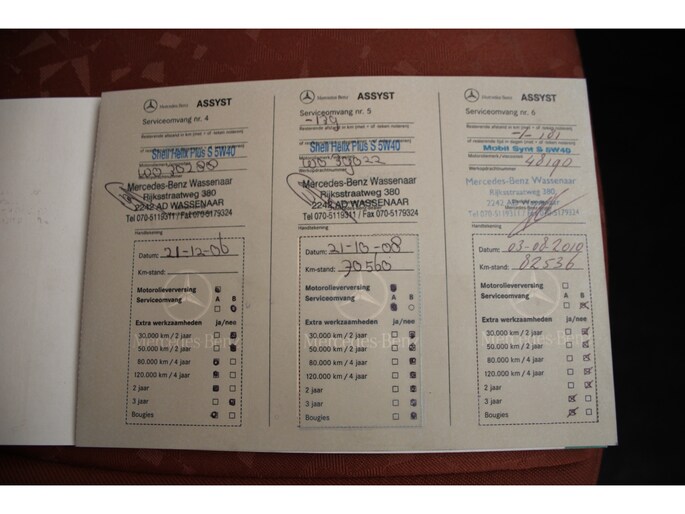 Mercedes-Benz ASSYST
Serviceomvang nr. 4
Shell Helix Plus S 5W40
Mercedes-Benz Wassenaar
Rijksstraatweg 380
2242 AD WASSENAAR
Tel 070-5119311 / Fax 070-5179324
Handtekening
Datum: 21-12-06
Km-stand:
Motorolieverversing
Serviceomvang A B
Extra werkzaamheden ja/nee
30.000 km / 2 jaar
50.000 km / 2 jaar
80.000 km / 4 jaar
120.000 km / 4 jaar
2 jaar
3 jaar
Bougies
Mercedes-Benz ASSYST
Serviceomvang nr. 5
-179
Shell Helix Plus S 5W40
WO 39022
Mercedes-Benz Wassenaar
Rijksstraatweg 380
2242 AD WASSENAAR
Tel 070-5119311 / Fax 070-5179324
Handtekening
Datum: 21-10-08
Km-stand: 70560
Motorolieverversing
Serviceomvang A B
Extra werkzaamheden ja/nee
30.000 km / 2 jaar
50.000 km / 2 jaar
80.000 km / 4 jaar
120.000 km / 4 jaar
2 jaar
3 jaar
Bougies
Mercedes-Benz ASSYST
Serviceomvang nr. 6
Mobil Synt S 5W40
48190
Mercedes-Benz Wassenaar
Rijksstraatweg 380
2242 AD Wassenaar
Handtekening
Datum: 03-08-2010
Km-stand: 82536
Motorolieverversing
Serviceomvang A B
Extra werkzaamheden ja/nee
30.000 km / 2 jaar
50.000 km / 2 jaar
80.000 km / 4 jaar
120.000 km / 4 jaar
2 jaar
3 jaar
Bougies